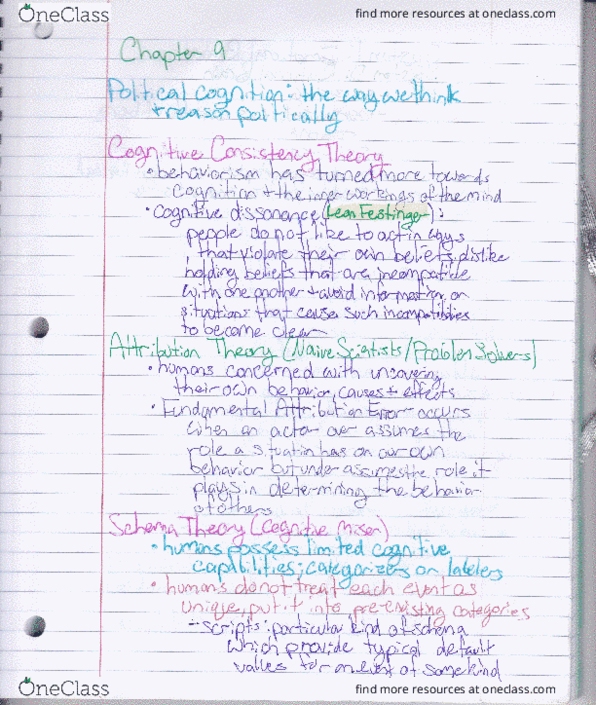 OneClass
find more resources at oneclass.com
Chapter 9
Political cognition: the way we think
+ reason politically
Cognitive Consistency Theory
• behaviorism has turned more towards
cognition + the inner workings of the mind
• Cognitive dissonance (Leon Festinger):
people do not like to act in ways
that violate their own beliefs, dislike
holding beliefs that are incompatible
with one another + avoid information or
situations that cause such incompatibilities
to become clear
Attribution Theory (Naive Scientists/Problem Solvers)
• humans concerned with uncovering
their own behavior, causes + effects
• Fundamental Attribution Error occurs
when an actor over assumes the
role a situation has on our own
behavior but under assumes the role it
plays in determining the behavior
of others
Schema Theory (Cognitive Miser)
• humans possess limited cognitive
capabilities; categorizers or labelers
• humans do not treat each event as
unique, put it into pre-existing categories
- scripts: particular kind of schema
which provide typical default
values for an event of some kind
OneClass
find more resources at oneclass.com